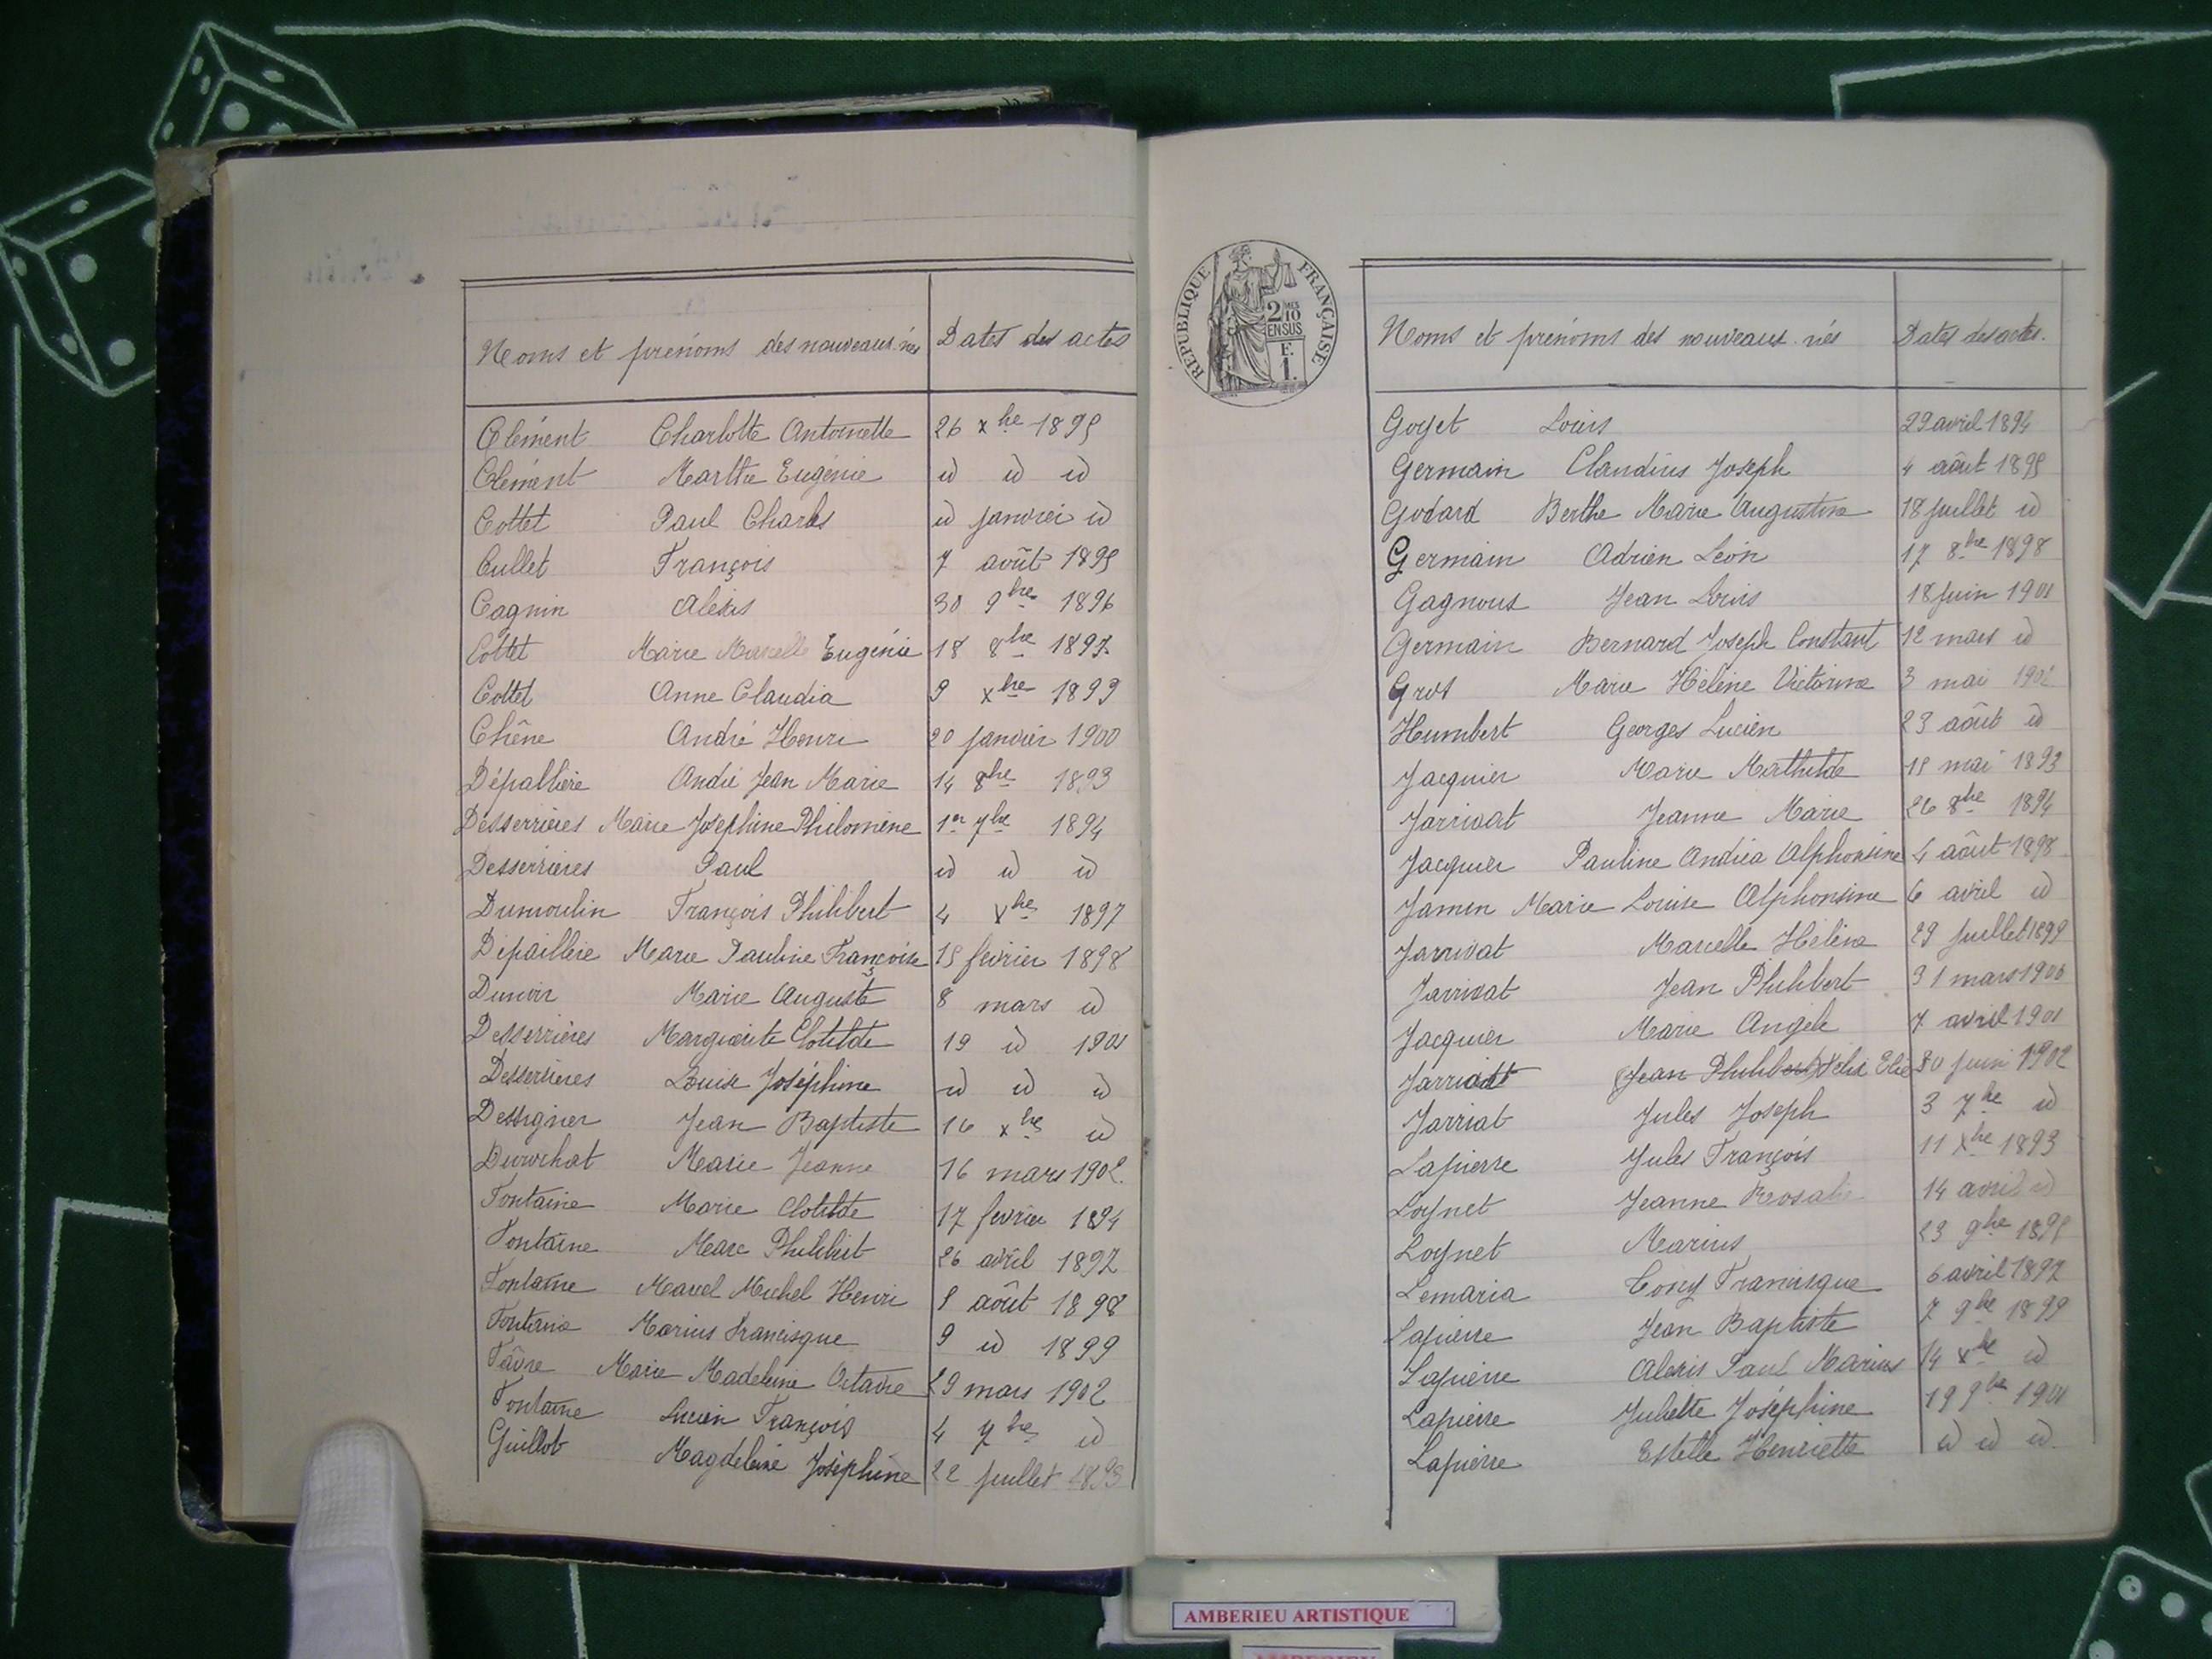 Noms et prénoms des nouveaux-nés Dates des actes
Clément Charlotte Antoinette 26 xbre 1895
Clément Marthe Eugénie id id id
Cottet Paul Charles id janvier id
Cullet François 7 août 1895
Cagnin Alexis 30 9bre 1896
Cottet Marie Marcelle Eugénie 18 8bre 1897
Cottet Anne Claudia 9 xbre 1899
Chêne André Henri 20 janvier 1900
Dépallière André Jean Marie 14 8bre 1893
Desserrières Marie Joséphine Philomène 1er 7bre 1894
Desserrières Paul id id id
Dumoulin François Philibert 4 xbre 1897
Dépaillère Marie Pauline Françoise 15 février 1898
Dunoir Marie Auguste 8 mars id
Desserrières Marguerite Clotilde 19 id 1901
Desserrières Louise Joséphine id id id
Dessigner Jean Baptiste 16 xbre id
Durochat Marie Jeanne 16 mars 1902.
Fontaine Marie Clotilde 17 fevrier 1894
Fontaine Marc Philibert 26 avril 1897
Fontaine Marcel Michel Henri août 1898
Fontaine Marius Francisque 9 id 1899
Fâvre Marie Madeleine Octavie 29 mars 1902
Fontaine Lucien François 4 7bre id
Guillot Magdeleine Joséphine 22 juillet 1893
REPUBLIQUE FRANÇAISE
2 MES
10
EN SUS
E.
1.
Noms et prénoms des nouveaux-nés Dates des actes.
Goyet Louis 29 avril 1894
Germain Claudius Joseph 4 août 1895
Godard Berthe Marie Augustine 18 juillet id
Germain Adrien Léon 17 8bre 1898
Gagnoux Jean Louis 18 juin 1901
Germain Bernard Joseph Constant 12 mars id
Gros Marie Hélène Victorine 3 mai 1902
Humbert Georges Lucien 23 août id
Jacquier Marie Mathilde 15 mai 1893
Jarrivat Jeanne Marie 26 8bre 1894
Jacquier Pauline Andréa Alphonsine 4 août 1898
Jamen Marie Louise Alphonsine 6 avril id
Jarrivat Marcelle Hélène 29 juillet 1899
Jarrivat Jean Philibert 31 mars 1900
Jacquier Marie Angèle 7 avril 1901
Jarriat Jean Philibert Félix Elie 30 juin 1902
Jarriat Jules Joseph 3 7bre id
Lapierre Jules François 11 xbre 1893
Loynet Jeanne Rosalie 14 avril id
Loynet Marius 23 9bre 1895
Lemaria Tony Francisque 6 avril 1897
Lapierre Jean Baptiste 7 9bre 1899
Lapierre Alexis Paul Marius 14 xbre id
Lapierre Juliette Joséphine 19 9bre 1901
Lapierre Estelle Henriette id id id
AMBERIEU ARTISTIQUE